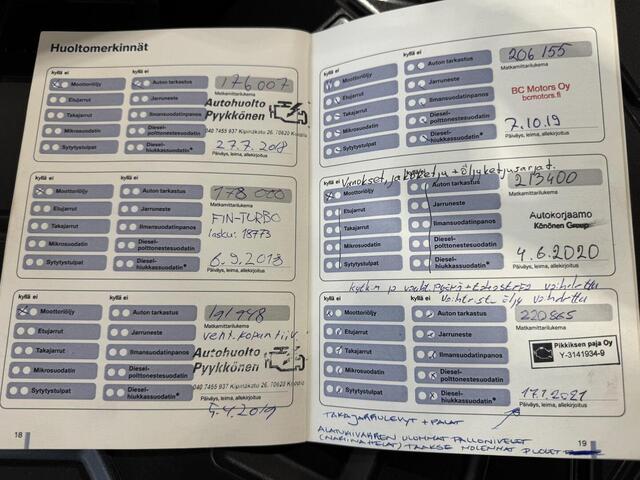 Huoltomerkinnät
kyllä ei kyllä ei
Moottoriöljy Auton tarkastus 176 007
Matkamittarilukema
Etujarrut Jarruneste
Autohuolto
Takajarrut Ilmansuodatinpanos
Pyykkönen
Mikrosuodatin Diesel-polttonestesuodatin
040 7455 937 Kipinäkatu 26, 70620 Kuopio
27.7.2018
Sytytystulpat Diesel-hiukkassuodatin*
Päiväys, leima, allekirjoitus
kyllä ei kyllä ei
Moottoriöljy Auton tarkastus 178 000
Matkamittarilukema
Etujarrut Jarruneste
FIN-TURBO
Takajarrut Ilmansuodatinpanos
lasku: 18773
Mikrosuodatin Diesel-polttonestesuodatin
6.9.2018
Sytytystulpat Diesel-hiukkassuodatin*
Päiväys, leima, allekirjoitus
kyllä ei kyllä ei
Moottoriöljy Auton tarkastus 191 948
Matkamittarilukema
Etujarrut Jarruneste
Takajarrut Ilmansuodatinpanos
Autohuolto
Pyykkönen
Mikrosuodatin Diesel-polttonestesuodatin
040 7455 937 Kipinäkatu 26, 70620 Kuopio
Sytytystulpat Diesel-hiukkassuodatin*
Päiväys, leima, allekirjoitus
5.4.2019
18
kyllä ei kyllä ei
Moottoriöljy Auton tarkastus 206 155
Matkamittarilukema
Etujarrut Jarruneste
BC Motors Oy
bcmotors.fi
Takajarrut Ilmansuodatinpanos
Mikrosuodatin Diesel-polttonestesuodatin
7.10.19
Sytytystulpat Diesel-hiukkassuodatin*
Päiväys, leima, allekirjoitus
kyllä ei
Moottoriöljy Auton tarkastus 213400
Matkamittarilukema
Etujarrut Jarruneste
Autokorjaamo
Könönen Group
Takajarrut Ilmansuodatinpanos
Mikrosuodatin Diesel-polttonestesuodatin
4.6.2020
Sytytystulpat Diesel-hiukkassuodatin*
Päiväys, leima, allekirjoitus
öljy vaihdettu
kyllä ei kyllä ei
Moottoriöljy Auton tarkastus 220865
Matkamittarilukema
Etujarrut Jarruneste
Pikkiksen paja Oy
Y-3141934-9
Takajarrut Ilmansuodatinpanos
Mikrosuodatin Diesel-polttonestesuodatin
Sytytystulpat Diesel-hiukkassuodatin*
17.1.2021
Päiväys, leima, allekirjoitus
TAKAJARRULEVYT + PALAT
ALATUKIVARREN ULOMMAT PALLONIVELET
TAAKSE MOLEMMAT PUOLET
19